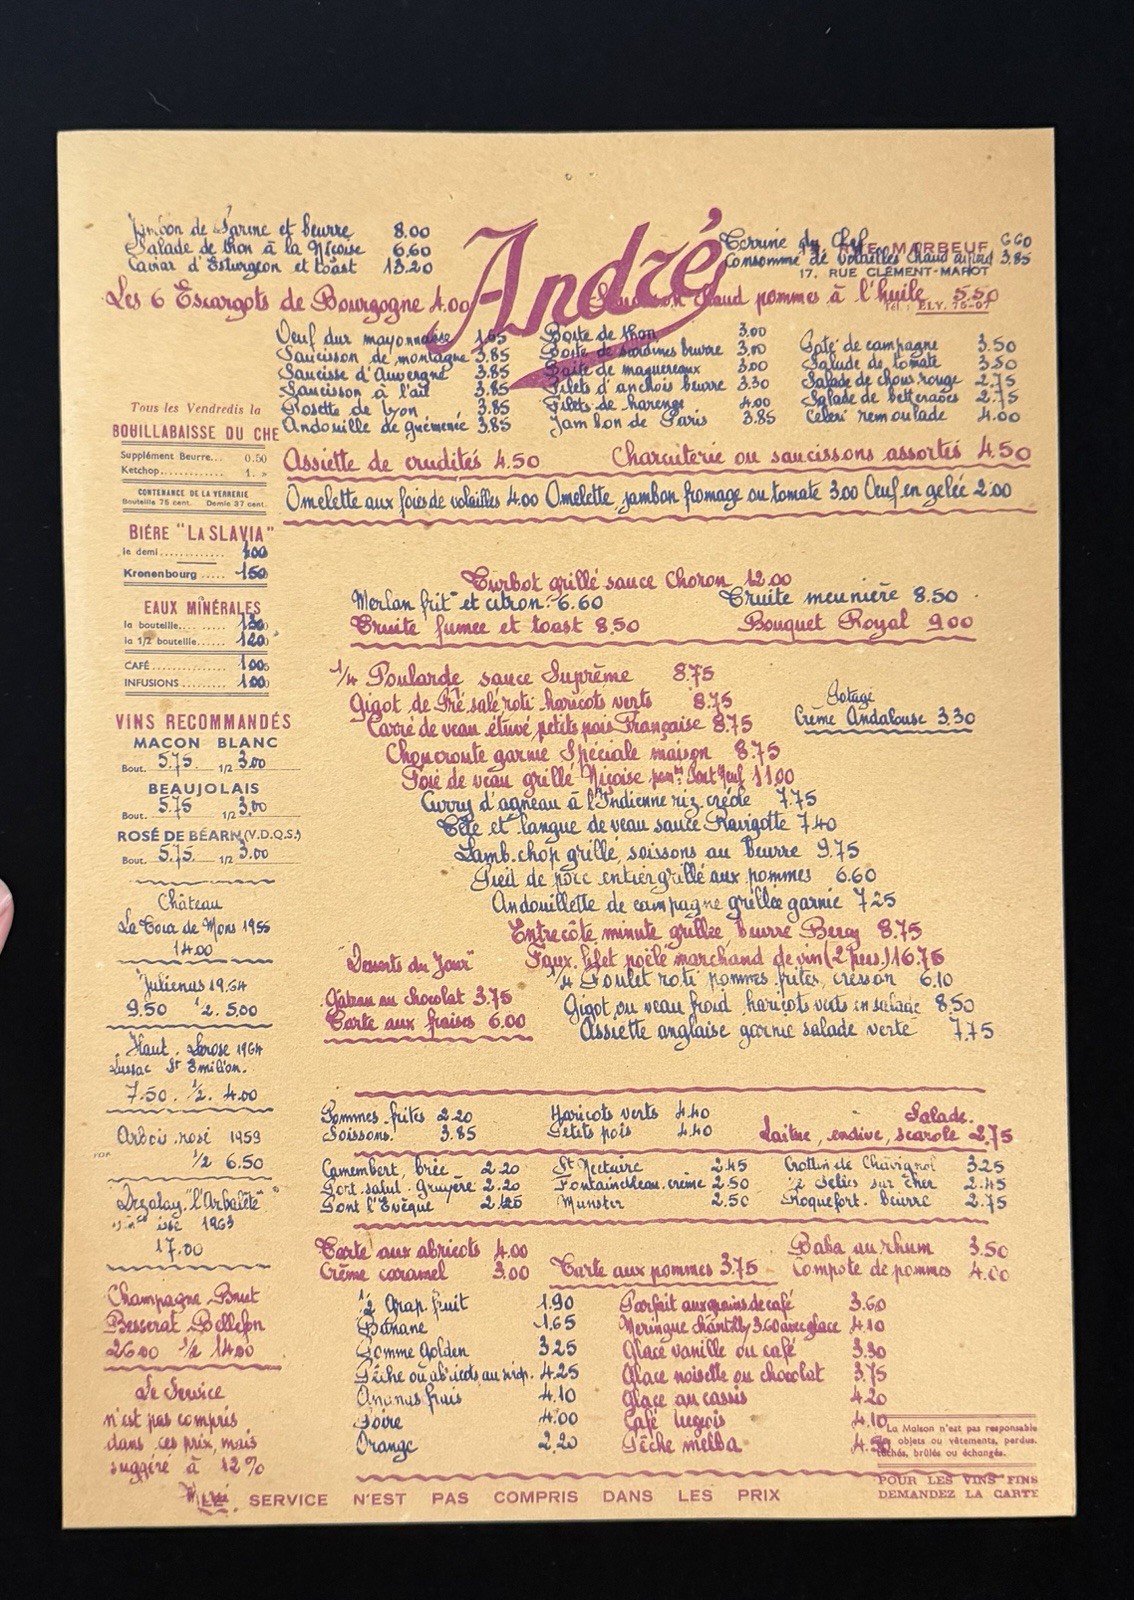 Jambon de Parme et beurre 8.00
Salade de thon à la Niçoise 6.60
Caviar d'Esturgeon et toast 13.20
André
Terrine du Chef 6.60
RUE MARBEUF
Consommé de Volailles Chaud au 3.85
17. RUE CLÉMENT-MAROT
Tél. : ELY. 75-07
Les 6 Escargots de Bourgogne 4.00
chaud pommes à l'huile 5.50
Oeuf dur mayonnaise 1.65
Saucisson de montagne 3.85
Saucisse d'Auvergne 3.85
Saucisson à l'ail 3.85
Rosette de Lyon 3.85
Andouille de Guéméné 3.85
Boite de thon 3.00
Boite de sardines beurre 3.00
Boite de maquereaux 3.00
Filets d'anchois beurre 3.30
Filets de harengs 4.00
Jambon de Paris 3.85
Pâté de campagne 3.50
Salade de tomate 3.30
Salade de chou rouge 2.75
Salade de betteraves 2.75
Céleri remoulade 4.00
Tous les Vendredis la
BOUILLABAISSE DU CHE
Supplément Beurre... 0.50
Ketchop............ 1. »
CONTENANCE DE LA VERRERIE
Bouteille 75 cent. Demie 37 cent.
Assiette de crudités 4.50
Charcuterie ou saucissons assortis 4.50
Omelette aux foies de volailles 4.00 Omelette, jambon fromage ou tomate 3.00 Oeuf en gelée 2.00
BIÈRE "LA SLAVIA"
le demi ............ 1.00
Kronenbourg ..... 1.50
EAUX MINÉRALES
la bouteille........ 1.30
la 1/2 bouteille..... 1.20
CAFÉ ............... 1.00
INFUSIONS ......... 1.00
Turbot grillé sauce Choron 12.00
Merlan frit et citron 6.60
Truite meunière 8.50
Truite fumée et toast 8.50
Bouquet Royal 9.00
1/4 Poularde sauce Suprême 8.75
Gigot de Pré salé roti haricots verts 8.75
Carré de veau étuvé, petits pois Française 8.75
Choucroute garnie Spéciale maison 8.75
Foie de veau grillé Niçoise pom. Pont Neuf 11.00
Curry d'agneau à l'Indienne riz créole 7.75
Tête et langue de veau sauce Ravigotte 7.40
Lamb.chop grillé, soissons au beurre 9.75
Pied de porc entier grillé aux pommes 6.60
Andouillette de campagne grillée garnie 7.25
Entrecôte minute grillée beurre Bercy 8.75
Faux.filet poêlé marchand de vin (2 pers) 16.75
1/4 Poulet roti pommes frites, cresson 6.10
Gigot ou veau froid haricots verts en salade 8.50
Assiette anglaise garnie salade verte 7.75
Potage
Crème Andalouse 3.30
"Desserts du Jour"
Gâteau au chocolat 3.75
Tarte aux fraises 6.00
VINS RECOMMANDÉS
MACON BLANC
Bout. 5.75 1/2 3.00
BEAUJOLAIS
Bout. 5.75 1/2 3.00
ROSÉ DE BÉARN (V.D.Q.S.)
Bout. 5.75 1/2 3.00
Château
La Tour de Mons 1955
14.00
Juliénas 1964
9.50 1/2. 5.00
Haut. Larose 1964
Lussac St Emilion.
7.50. 1/2. 4.00
Arbois rosé 1959
1/2 6.50
Dezaley "l'Arbalète"
1963
17.00
Champagne Brut
Besserat Bellefon
26.00 1/2 14.00
Le Service
n'est pas compris
dans ces prix, mais
suggéré à 12%
Pommes frites 2.20
Soissons. 3.85
Haricots verts 4.40
Petits pois 4.40
Salade.
Laitue, endive, scarole 2.75
Camembert, brie 2.20
Port.salut. Gruyère 2.20
Pont l'Evêque
St Nectaire 2.45
Fontainebleau.crème 2.50
Munster 2.50
Crottin de Chavignol 3.25
Selles sur Cher 2.45
Roquefort. beurre 2.75
Tarte aux abricots 4.00
Crème caramel 3.00
Tarte aux pommes 3.75
Baba au rhum 3.50
Compote de pommes 4.00
1/2 Grap. fruit 1.90
Banane 1.65
Pomme Golden 3.25
Pêche ou abricots au sirop. 4.25
Ananas frais 4.10
Poire 4.00
Orange 2.20
Parfait aux grains de café 3.60
Meringue chantilly 3.60 avec glace 4.10
Glace vanille ou café 3.30
Glace noisette ou chocolat 3.75
Glace au cassis 4.20
Café liégeois 4.10
Pêche melba
La Maison n'est pas responsable
objets ou vêtements, perdus.
tachés, brûlés ou échangés.
POUR LES VINS FINS
DEMANDEZ LA CARTE
SERVICE N'EST PAS COMPRIS DANS LES PRIX